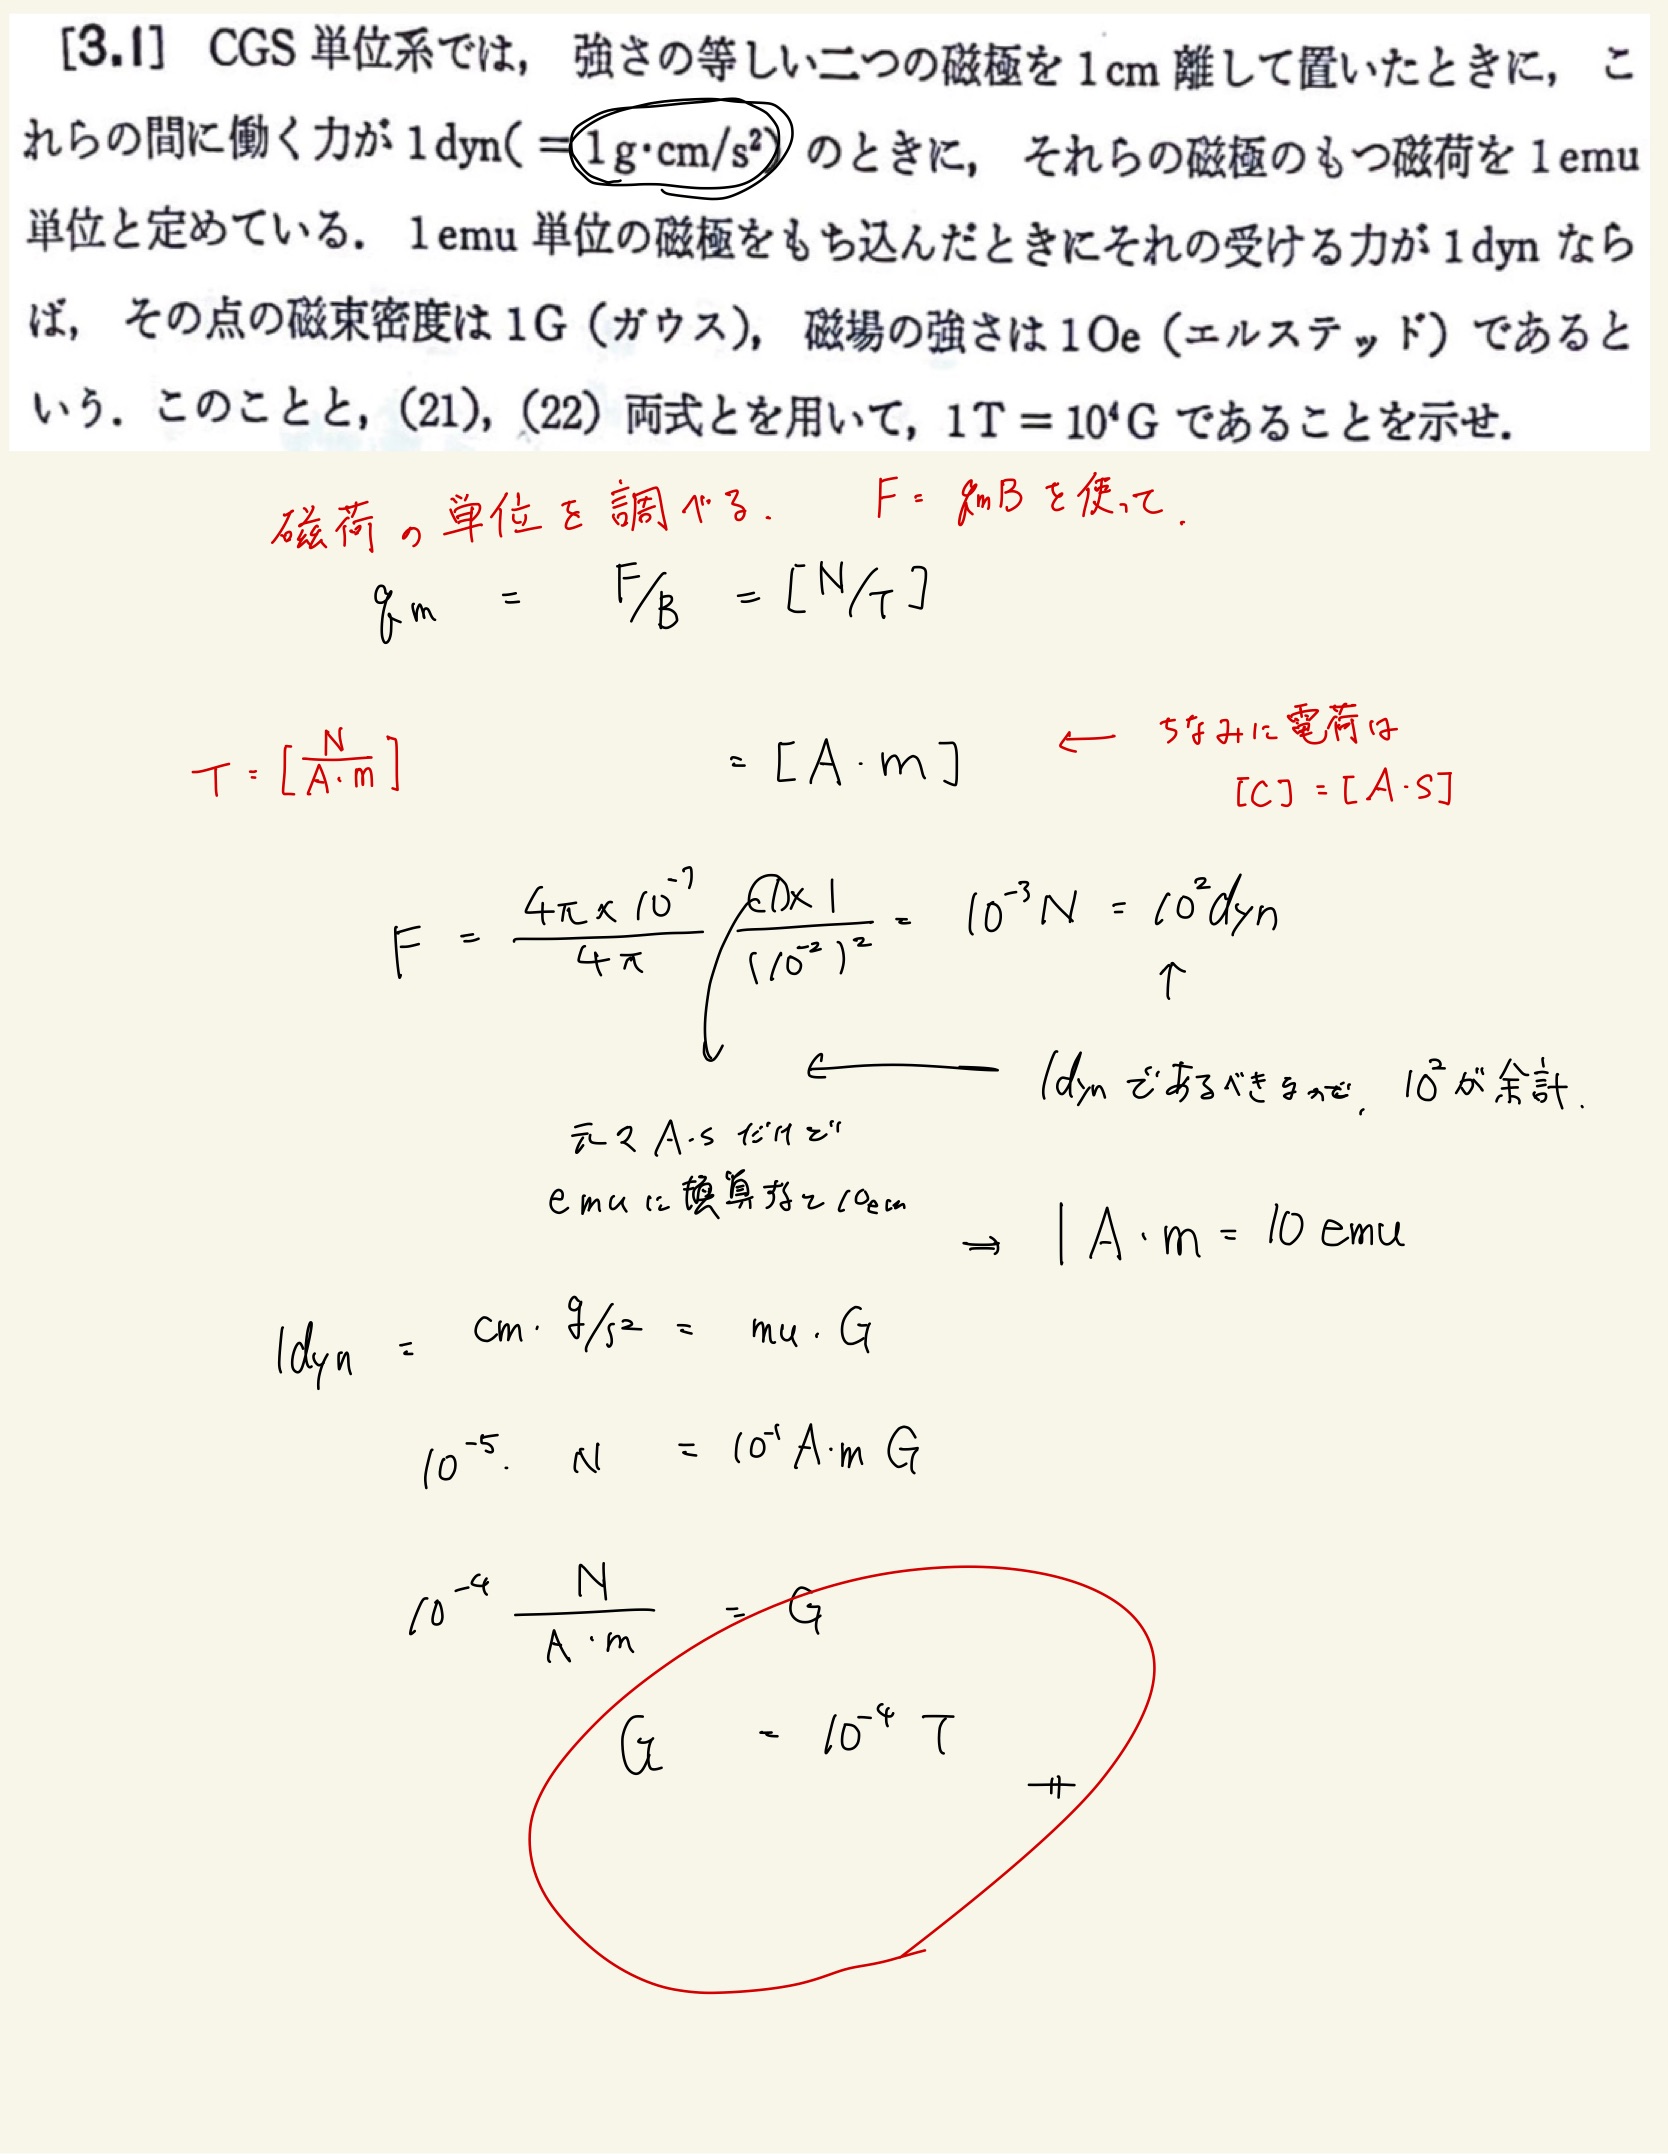 [3.1] CGS 単位系では, 強さの等しい二つの磁極を 1cm 離して置いたときに, こ
れらの間に働く力が 1dyn( = 1g·cm/s²) のときに, それらの磁極のもつ磁荷を 1emu
単位と定めている. 1emu 単位の磁極をもち込んだときにそれの受ける力が 1dyn なら
ば, その点の磁束密度は 1G (ガウス), 磁場の強さは 1Oe (エルステッド) であると
いう. このことと, (21), (22) 両式とを用いて, 1T = 10⁴G であることを示せ.
磁荷の単位を調べる. F = qmB を使って.
qm = F/B = [N/T]
T = [N/A·m] = [A·m] ← ちなみに電荷は
[C] = [A·s]
F = 4π×10⁻⁷/4π (1)×1/(10⁻²)² = 10⁻³N = 10²dyn
↑
← 1dyn であるべきなので, 10²が余計.
元々 A·s だけど
emu に換算すると 10em
⇒ 1A·m = 10 emu
1dyn = cm·g/s² = mu·G
10⁻⁵· N = 10⁻¹A·m G
10⁻⁴ N/A·m = G
G = 10⁻⁴ T